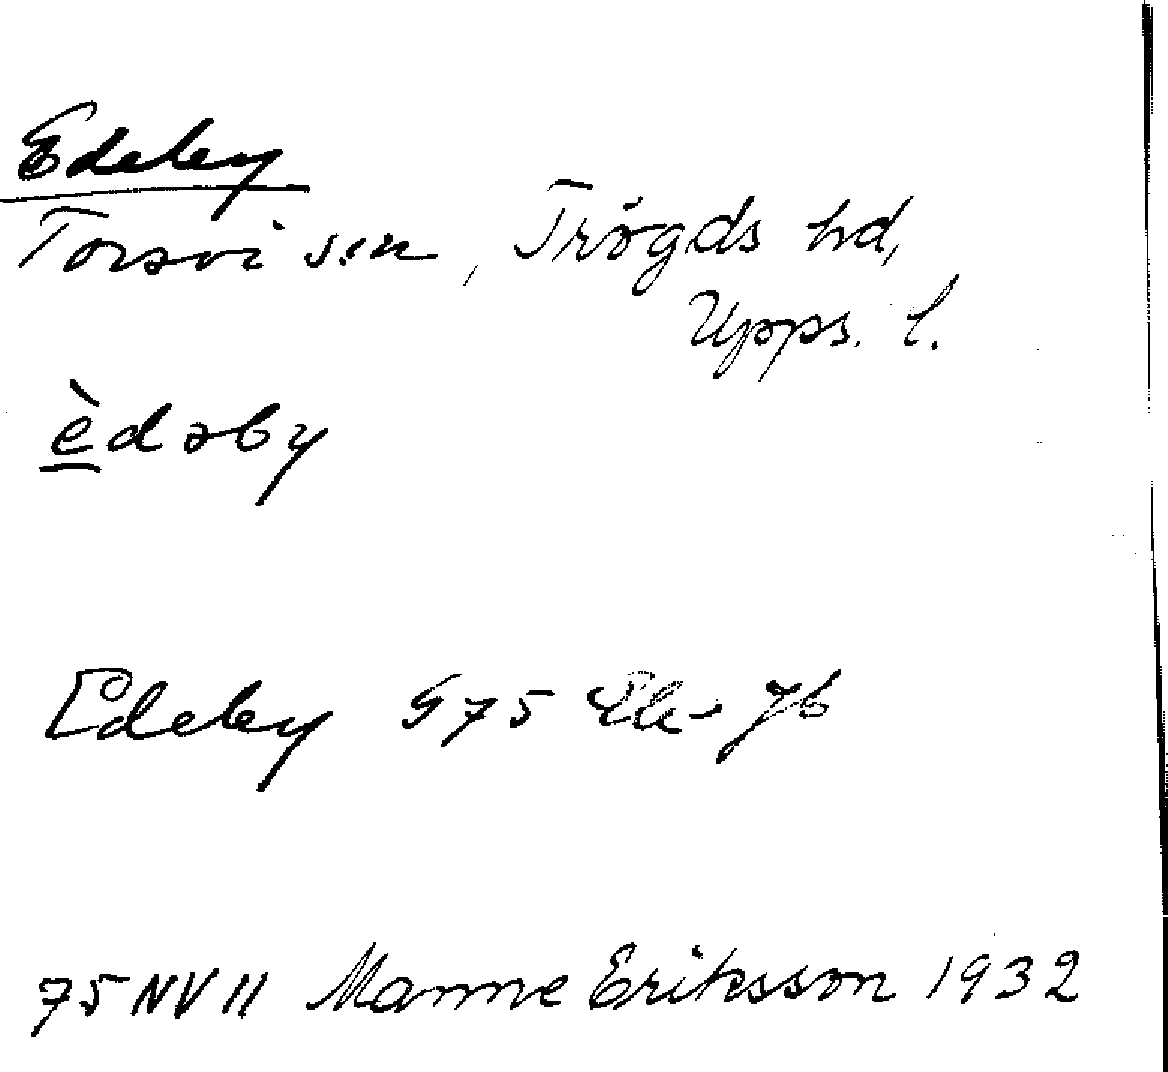 Edeby
Torsvi sn, Trögds hd,
Upps. l.
èdəby
Edeby G75 Ek Jb
75 NV II Manne Eriksson 1932